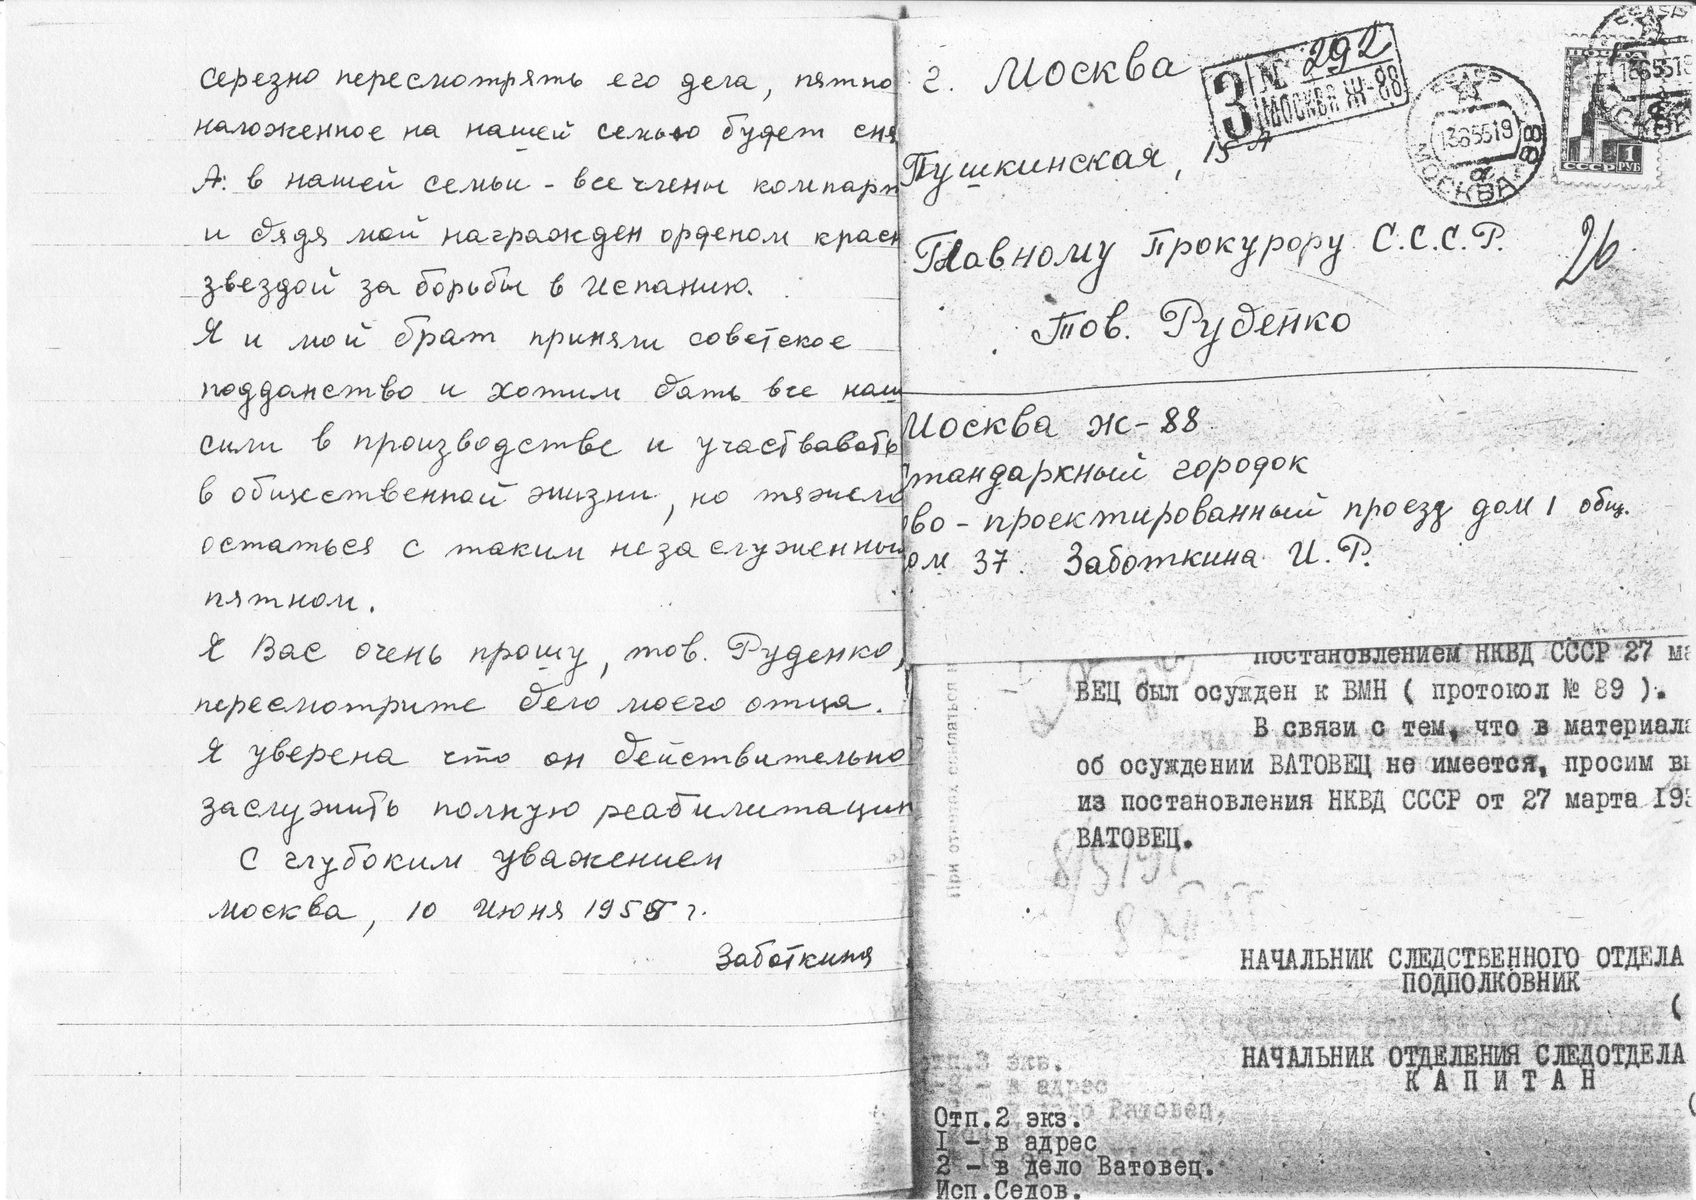 серезно пересмотрять его дела, пятно
наложенное на нашей семью будет сня
А: в нашей семьи - все члены компарт
и дядя мой награжден орденом красн
звездой за борьбы в Испанию.
Я и мой брат приняли советское
подданство и хотим дать все наш
сили в производстве и участвавоть
в общественной жизни, но тяжело
остаться с таким незаслуженным
пятном.
Я Вас очень прошу, тов. Руденко,
пересмотрите дело моего отца.
Я уверена что он действительно
заслужить полную реабилитацин
С глубоким уважением
Москва, 10 Июня 1955 г.
Заботкина
г. Москва
З № 292
МОСКВА Ж-88
1365519
МОСКВА
88
СССР 1 РУБ
Пушкинская, 15 А
Главному Прокурору С.С.С.Р.
26
Тов. Руденко
Москва Ж-88
Стандаркный городок
ово-проектированный проезд дом 1 общ.
ом 37. Заботкина И.Р.
постановлением НКВД СССР 27 ма
ВЕЦ был осужден к ВМН ( протокол № 89 ).
В связи с тем, что в материала
об осуждении ВАТОВЕЦ не имеется, просим вы
из постановления НКВД СССР от 27 марта 193
ВАТОВЕЦ.
НАЧАЛЬНИК СЛЕДСТВЕННОГО ОТДЕЛА
ПОДПОЛКОВНИК
(
НАЧАЛЬНИК ОТДЕЛЕНИЯ СЛЕДОТДЕЛА
КАПИТАН
(
отп.3 экз.
в адрес
дело Ватовец.
Отп.2 экз.
1 - в адрес
2 - в дело Ватовец.
Исп.Седов.